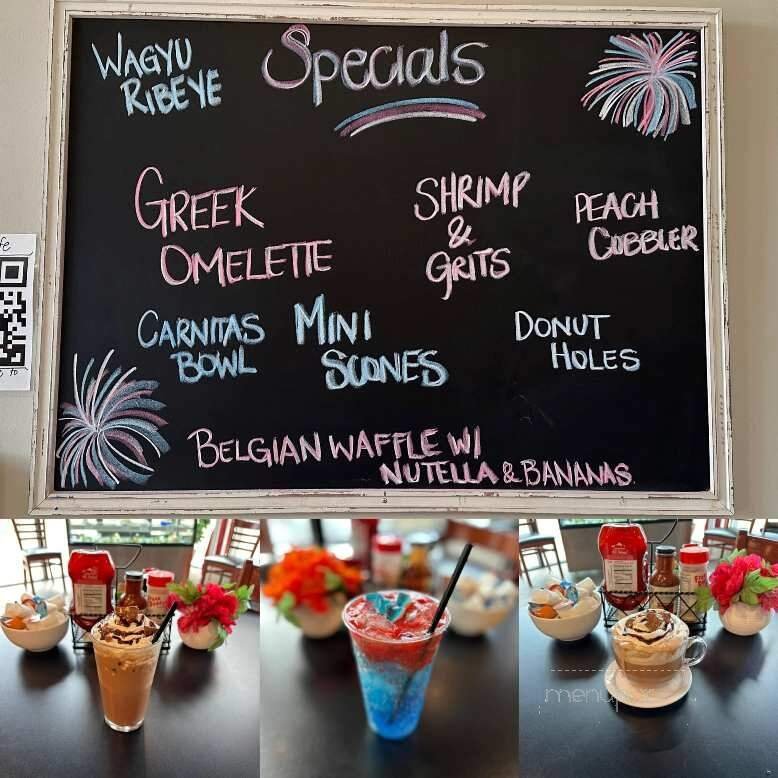 Specials
WAGYU
RIBEYE
GREEK
OMELETTE
SHRIMP
&
GRITS
PEACH
COBBLER
CARNITAS
BOWL
MINI
SCONES
DONUT
HOLES
BELGIAN WAFFLE W/
NUTELLA & BANANAS